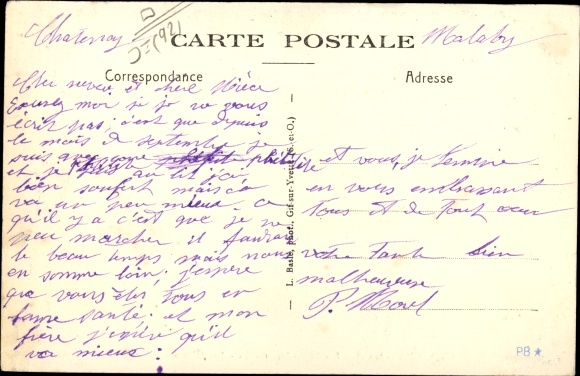 Chatenay Malabry
CARTE POSTALE
Correspondance
Adresse
Cher neveu et chere Nièce
Excusez moi si je ne vous
écrit pas, c'est que depuis
le mois d septembre je
suis avec une phlébite
et je suis au lit j'ai
bien souffert mais ca
va un peu mieux. ce
qu'il y a c'est que je ne
peu marcher il faudrai
le beau temps mais nous
en somme loin; j'espère
que vous êtes tous en
bonne santé et mon
frère j'espère qu'il
va mieux:
et vous je termine
en vous embrassant
tous et de tout cœur
votre tante bien
malheureuse
P. Morel
L. Basle, phot., Gif-sur-Yvette (S.-et-O.)
PB★